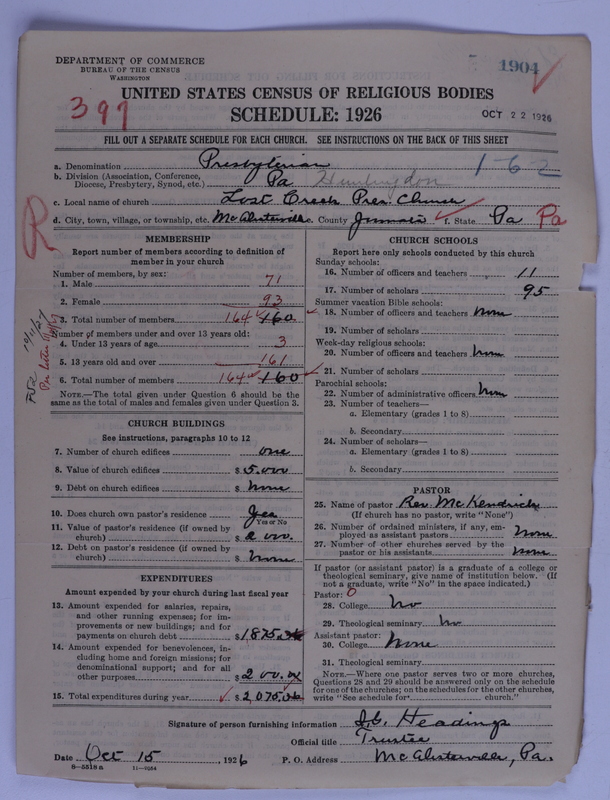 DEPARTMENT OF COMMERCE
BUREAU OF THE CENSUS
WASHINGTON
1904
UNITED STATES CENSUS OF RELIGIOUS BODIES
397
SCHEDULE: 1926
OCT 22 1926
FILL OUT A SEPARATE SCHEDULE FOR EACH CHURCH. SEE INSTRUCTIONS ON THE BACK OF THIS SHEET
a. Denomination Presbyterian
1-6-2
b. Division (Association, Conference, Diocese, Presbytery, Synod, etc.) Pa Huntingdon
c. Local name of church Lost Creek Pres. Church
d. City, town, village, or township, etc. McAlisterville e. County Juniata f. State Pa Pa
R
MEMBERSHIP
Report number of members according to definition of
member in your church
Number of members, by sex:
1. Male 71
2. Female 93
3. Total number of members 164 160
Number of members under and over 13 years old:
4. Under 13 years of age 3
5. 13 years old and over 161
6. Total number of members 164 160
NOTE.—The total given under Question 6 should be
same as the total of males and females given under Question 3.
CHURCH BUILDINGS
See instructions, paragraphs 10 to 12
7. Number of church edifices one
8. Value of church edifices $ 5,000
9. Debt on church edifices $ None
10. Does church own pastor's residence Yes
Yes or No
11. Value of pastor's residence (if owned by
church) $ 2000.
12. Debt on pastor's residence (if owned by
church) $ None
EXPENDITURES
Amount expended by your church during last fiscal year
13. Amount expended for salaries, repairs,
and other running expenses; for im-
provements or new buildings; and for
payments on church debt $ 1875.
14. Amount expended for benevolences, in-
cluding home and foreign missions; for
denominational support; and for all
other purposes $ 200.00
15. Total expenditures during year $ 2075.
CHURCH SCHOOLS
Report here only schools conducted by this church
Sunday schools:
16. Number of officers and teachers 11
17. Number of scholars 95
Summer vacation Bible schools:
18. Number of officers and teachers None
19. Number of scholars
Week-day religious schools:
20. Number of officers and teachers None
21. Number of scholars
Parochial schools:
22. Number of administrative officers None
23. Number of teachers—
a. Elementary (grades 1 to 8)
b. Secondary
24. Number of scholars—
a. Elementary (grades 1 to 8)
b. Secondary
PASTOR
25. Name of pastor Rev. McKendrick
(If church has no pastor, write "None")
26. Number of ordained ministers, if any, em-
ployed as assistant pastors None
27. Number of other churches served by the
pastor or his assistants None
If pastor (or assistant pastor) is a graduate of a college or
theological seminary, give name of institution below. (If
not a graduate, write "No" in the space indicated.)
Pastor:
28. College No
29. Theological seminary No
Assistant pastor:
30. College None
31. Theological seminary
NOTE.—Where one pastor serves two or more churches,
Questions 28 and 29 should be answered only on the schedule
for one of the churches; on the schedules for the other churches,
write "See schedule for church."
Signature of person furnishing information Headings
Official title Trustee
Date Oct 15, 1926 P. O. Address McAlisterville, Pa.
8—5518 a 11—9554